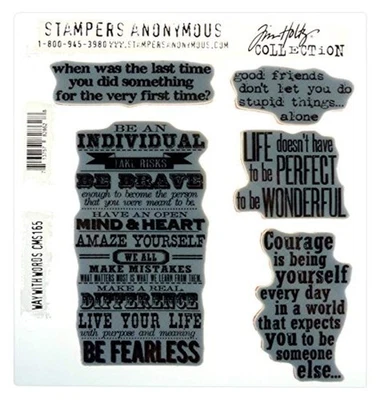 STAMPERS ANONYMOUS
1-800-945-3980 www.STAMPERSANONYMOUS.COM
Tim Holtz
COLLECTION
when was the last time
you did something
for the very first time?
good friends
don't let you do
stupid things...
alone
BE AN
INDIVIDUAL
TAKE RISKS
BE BRAVE
enough to become the person
that you were meant to be.
HAVE AN OPEN
MIND & HEART
AMAZE YOURSELF
WE ALL
MAKE MISTAKES
WHAT MATTERS MOST IS WHAT WE LEARN FROM THEM.
MAKE A REAL
DIFFERENCE
LIVE YOUR LIFE
with purpose and meaning
BE FEARLESS
LIFE doesn't have
to be PERFECT
to be WONDERFUL
Courage
is being
yourself
every day
in a world
that expects
you to be
someone
else...
WAY WITH WORDS CMS165